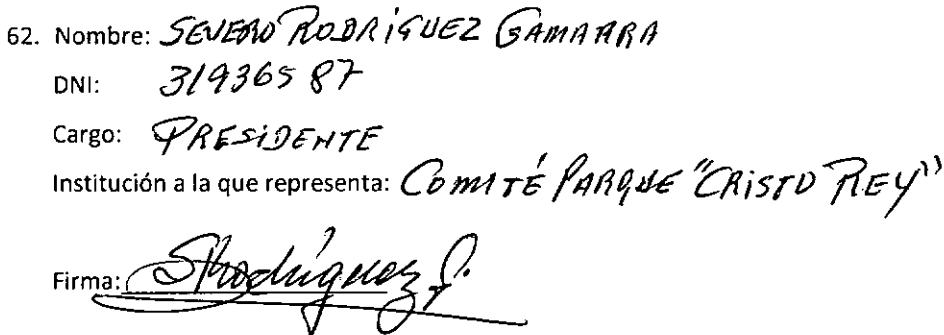 62. Nombre: SEVERO RODRIGUEZ GAMARRA
DNI: 31936587
Cargo: PRESIDENTE
Institución a la que representa: COMITÉ PARQUE "CRISTO REY"
Firma: SRodríguez G.